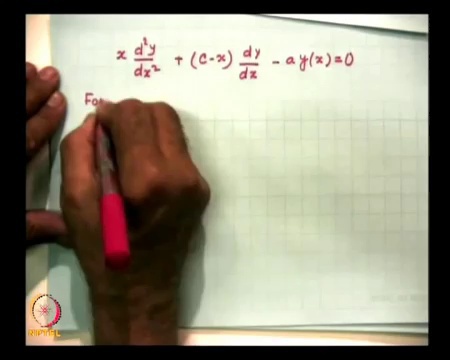 x d²y/dx² + (c-x) dy/dx - a y(x) = 0
Fo
NPTEL